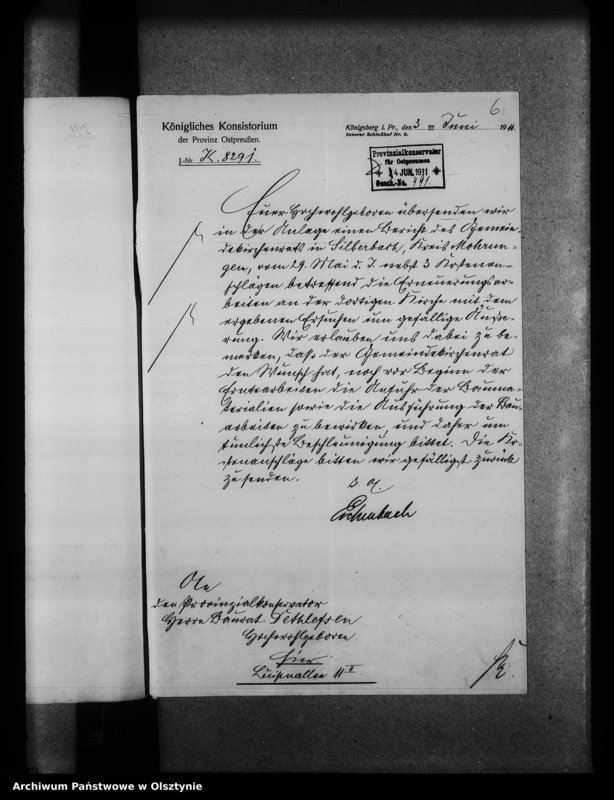 6
Königliches Konsistorium
der Provinz Ostpreußen.
J.-Nr. K. 8291.
Königsberg i. Pr., den 3 ten Juni 1911.
Innerer Schloßhof Nr. 6.
Provinzialkonservator
für Ostpreussen
4 JUN. 1911
Gesch.-No. 441.
Euer Hochwohlgeboren übersenden wir
in der Anlage einen Bericht des Gemein-
dekirchenrats in Silberbach, Kreis Mohrun-
gen, vom 29. Mai d. J. nebst 3 Kostenan-
schlägen betreffend die Erneuerungsar-
beiten an der dortigen Kirche mit dem
ergebenen Ersuchen um gefällige Äuße-
rung. Wir erlauben uns dabei zu be-
merken, daß der Gemeindekirchenrat
den Wunsch hat, noch vor Beginn der
Erntearbeiten die Anfuhr der Bauma-
terialien sowie die Ausführung der Bau-
arbeiten zu bewirken, und daher um
tunlichste Beschleunigung bittet. Die Ko-
stenanschläge bitten wir gefälligst zurück
zu senden.
Eichenbach
An
den Provinzialkonservator
Herrn Baurat Dethlefsen
Hochwohlgeboren
hier
Luisenallee 11 II
Archiwum Państwowe w Olsztynie